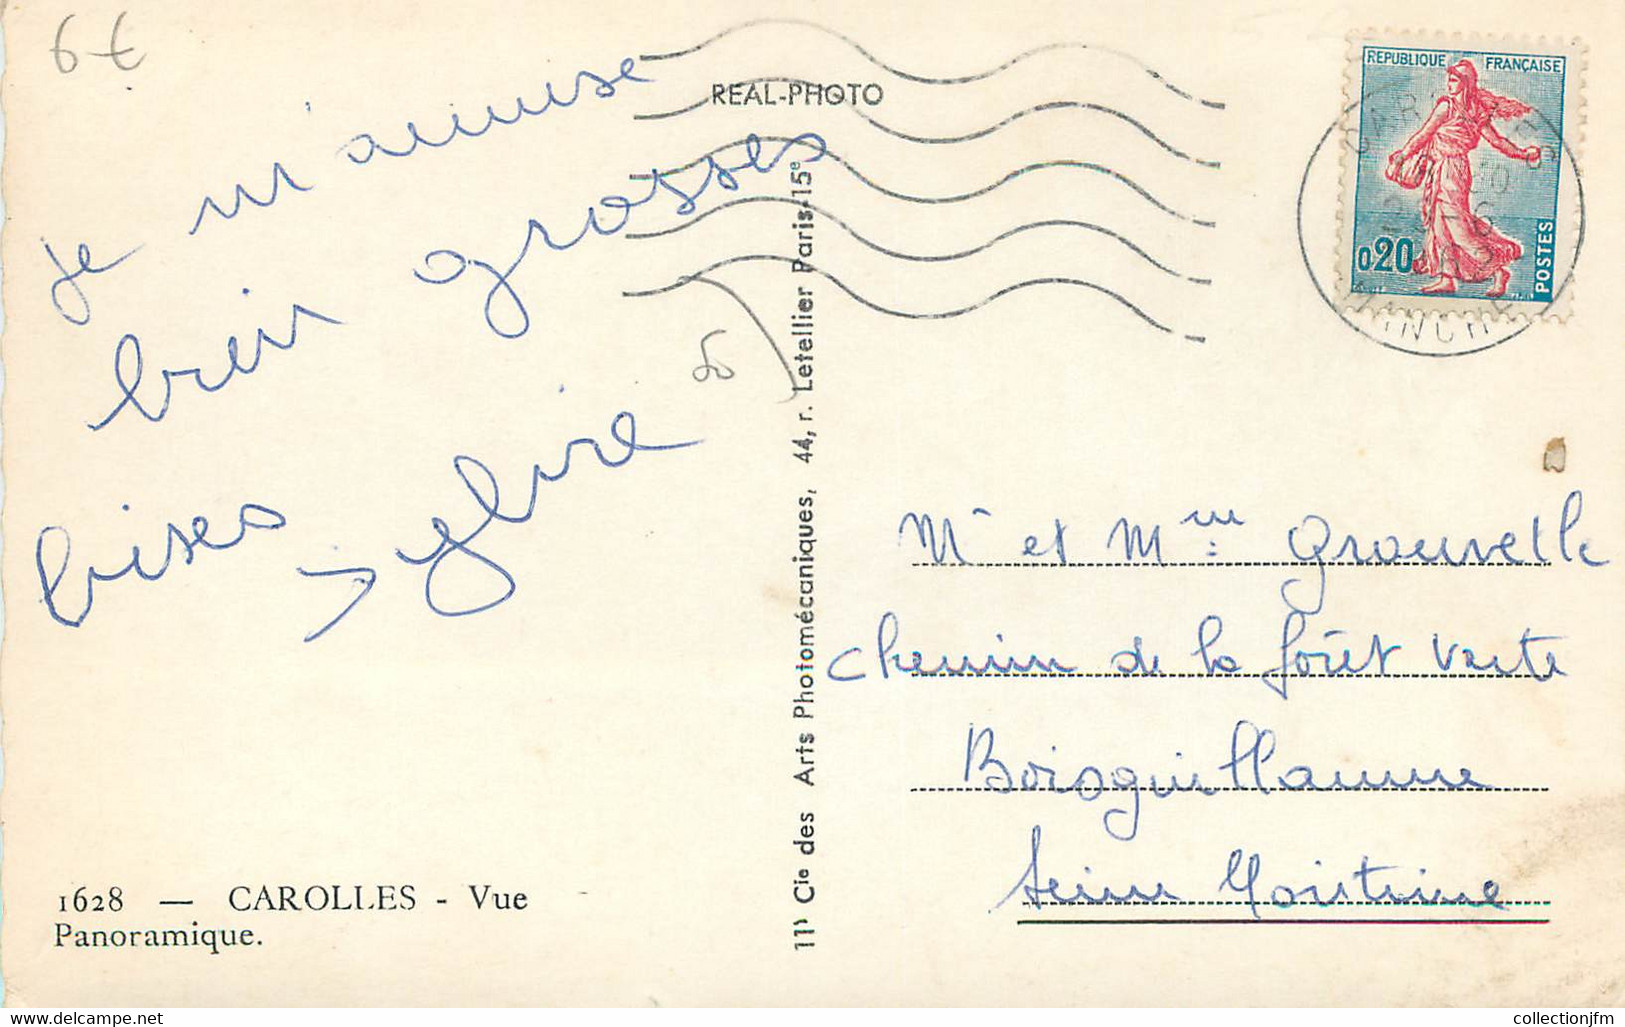 6€
je m'amuse
bien grosses
bises
Sylvie
REAL-PHOTO
REPUBLIQUE FRANÇAISE
0,20
POSTES
MANCHE
11) Cie des Arts Photomécaniques, 44, r. Letellier Paris-15e
Mr et Mme Grouvelle
Chemin de la forêt verte
Boisguillaume
Seine Maritime
1628 — CAROLLES - Vue
Panoramique.
www.delcampe.net
collectionjfm